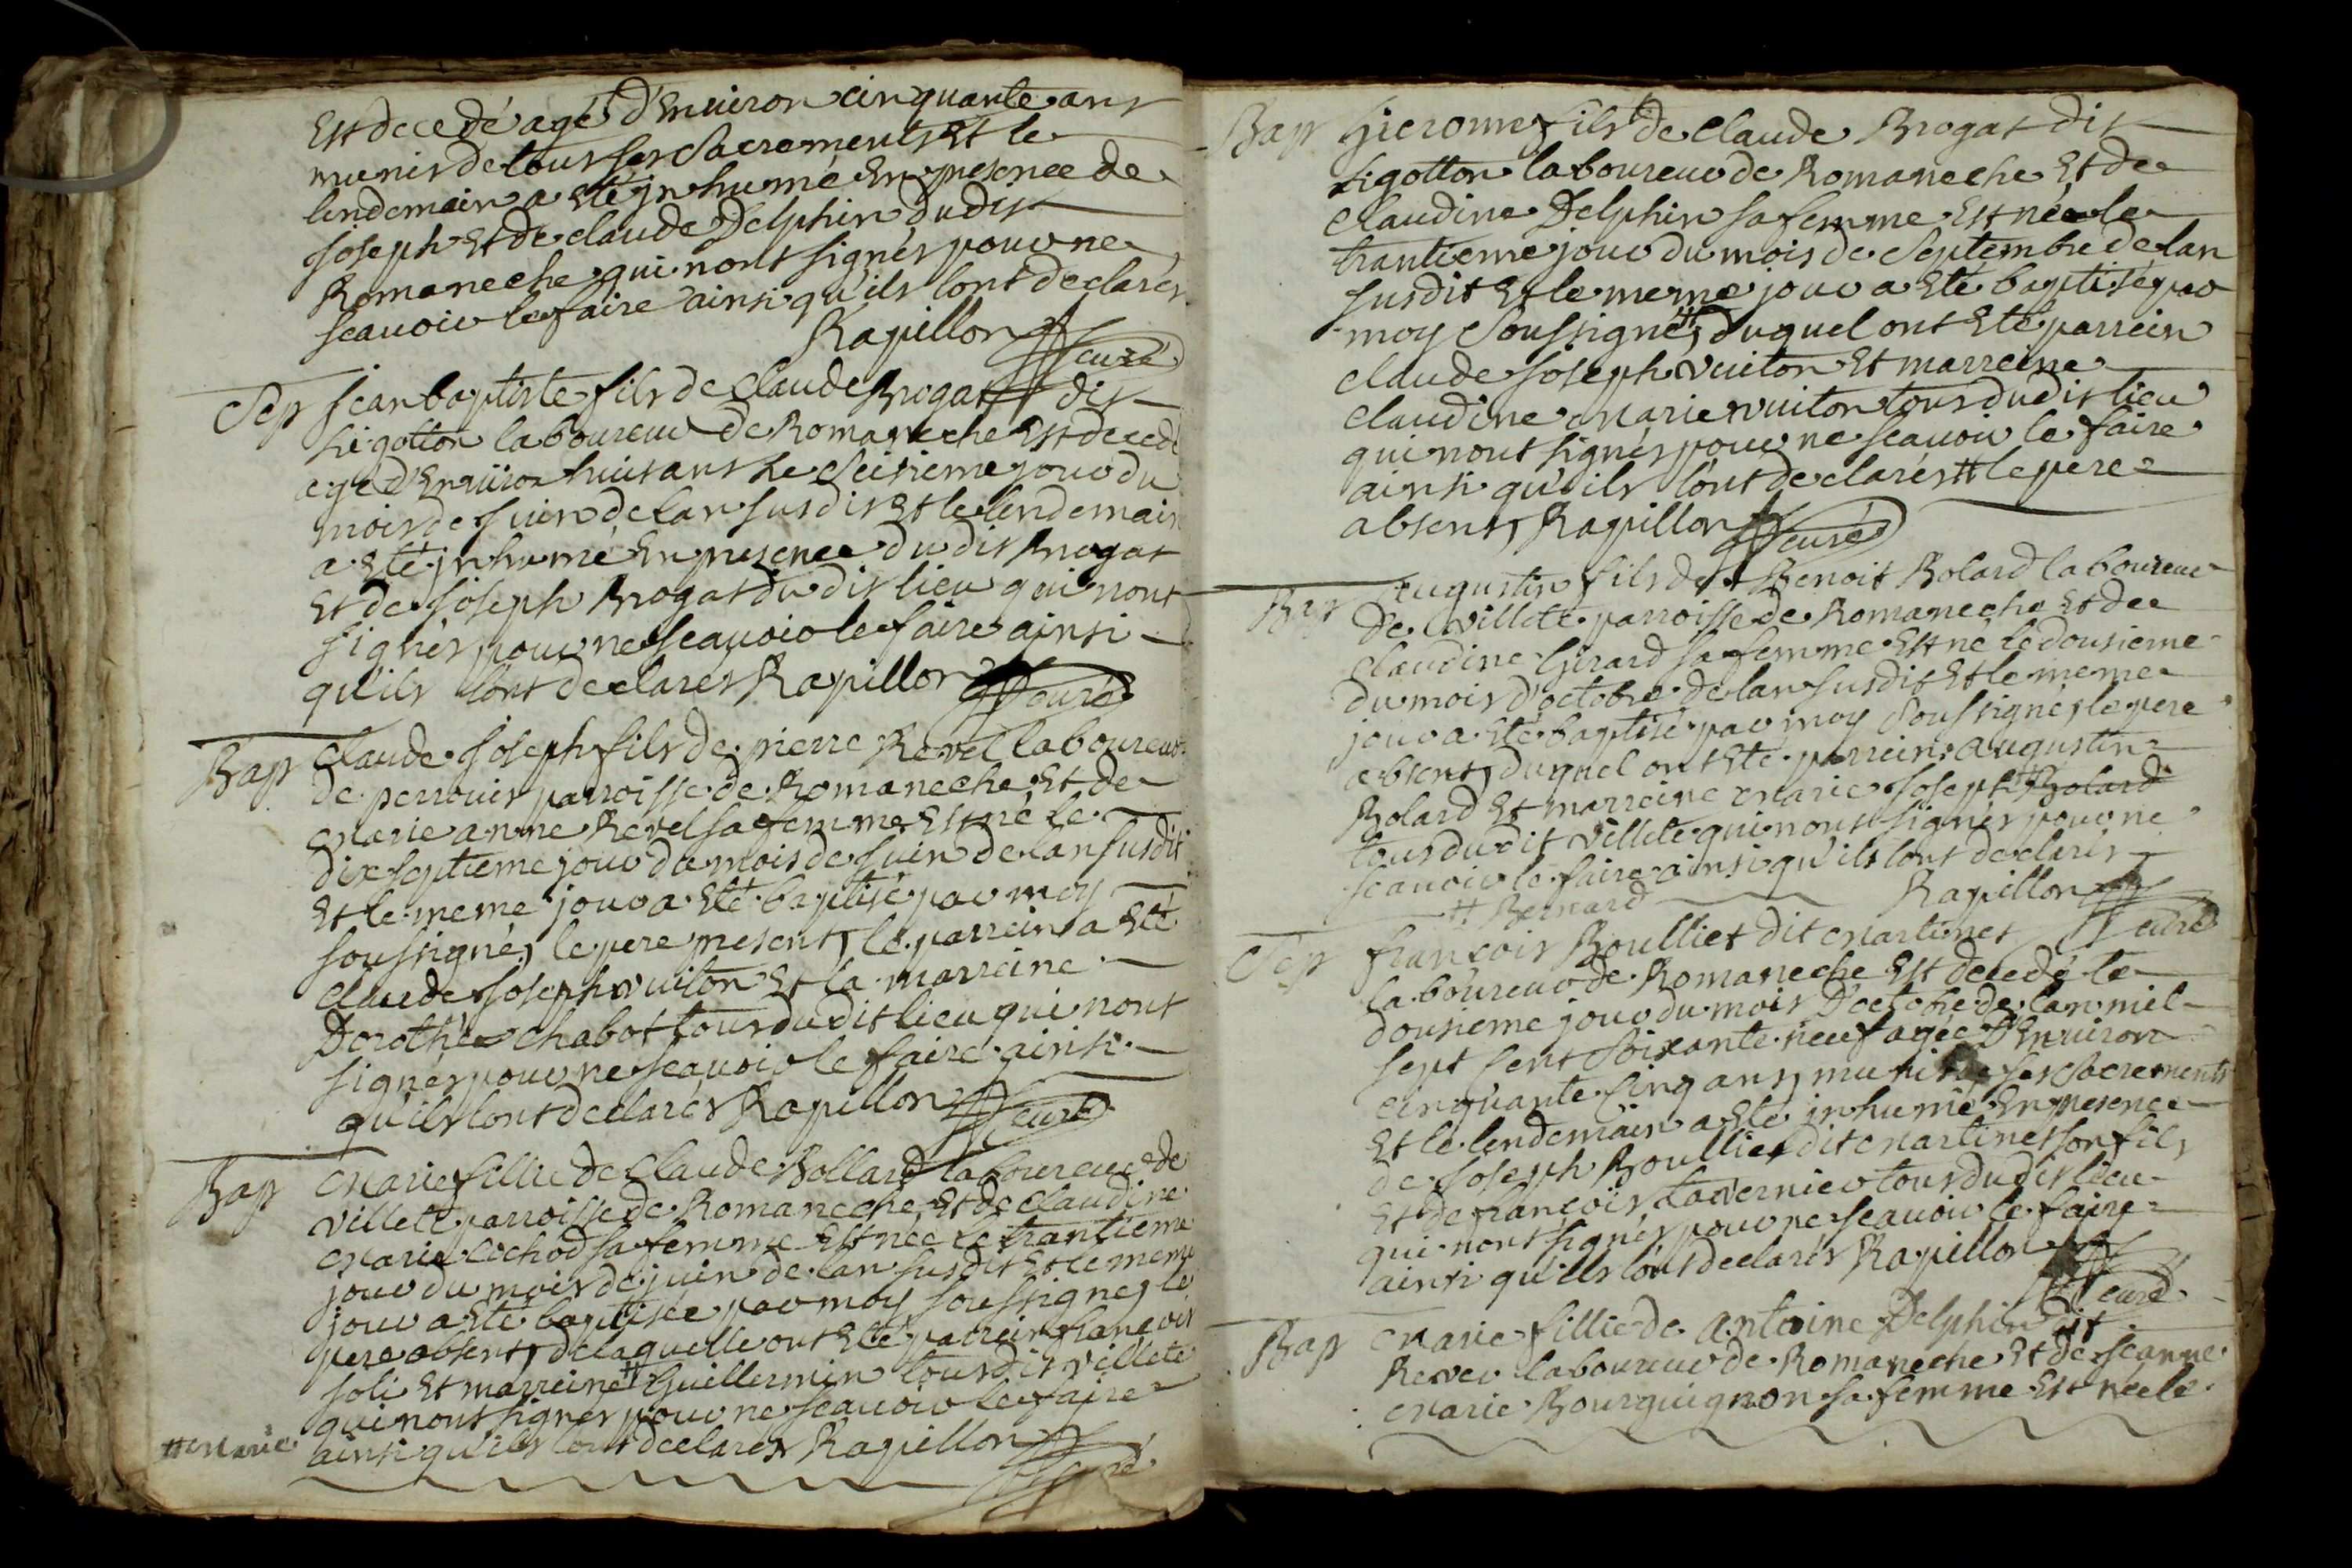 Est decedé agé d'Enuiron cinquante ans
munis de tous ses Sacrements Et le
lendemain a Eté jnhumé En presence de
Joseph Et de claude Delphin dudit
Romaneche qui nont signés pour ne
scauoir le faire ainsi qu'ils lont declarés
Rapillon curé
Sep Jean baptiste fils de Claude Brogat dit
ligotton laboureur de Romaneche Est decedé
agé d'Enuiron huit ans Le Seisieme jour du
mois de Juin de lan susdit Et le lendemain
a Eté jnhumé En presence du dit Brogat
Et de Joseph Brogat du dit lieu qui nont
signés pour ne scauoir le faire ainsi
qu'ils lont declarés Rapillon curé
Bap Claude Joseph fils de pierre Revel laboureur
de perrouis parroisse de Romaneche Et de
Marie anne Revel sa femme Est né le
dix septieme jour du mois de Juin de lan susdit
Et le meme jour a Eté baptisé par moy
soussigné, le pere present, le parrein a Eté
Claude Joseph vuiton Et la marreine
Dorothée Chabot tous du dit lieu qui nont
signés pour ne scauoir le faire ainsi
qu'ils lont declarés Rapillon curé
Bap Marie fillie de Claude Bollard laboureur de
villete parroisse de Romaneche Et de Claudine
Marie cochod sa femme Est née Le trantieme
jour du mois de juin de lan susdit Et le meme
jour a Eté baptisée par moy soussigné, le
pere absent, de laquelle ont Eté parrein francois
joli Et marreine # Guillermin tous dit villete
qui nont signés pour ne scauoir le faire
# Marie ainsi qu'ils lont declarés Rapillon curé
Bap Gierome fils de Claude Brogat dit
ligotton laboureur de Romaneche Et de
Claudine Delphin sa femme Est né le
trantieme jour du mois de Septembre de lan
susdit Et le meme jour a Eté baptisé par
moy Soussigné, # duquel ont Eté parrein
Claude Joseph vuiton Et marreine
Claudine Marie vuiton tous du dit lieu
qui nont signés pour ne scauoir le faire
ainsi qu'ils lont declarés # le pere
absent, Rapillon curé
Bap Augustin fils de Benoit Bolard laboureur
de villete parroisse de Romaneche Et de
Claudine Girard sa femme Est né le dousieme
du mois d'octobre de lan susdit Et le meme
jour a Eté baptisé par moy Soussigné, le pere
absent, duquel ont Eté parrein Augustin
Bolard Et marreine Marie Joseph # Bolard
tous du dit villete qui nont signés pour ne
scauoir le faire ainsi qu'ils lont declarés
# Bernard Rapillon curé
Sep françois Boulliet dit Martinet
laboureur de Romaneche Est decedé le
dousieme jour du mois D'octobre de lan mil
sept Cent Soixante neuf agée D'Enuiron
cinquante Cinq ans, munis de ses Sacrements
Et le lendemain a Eté jnhumé En presence
de Joseph Boulliet dit Martinet son fils
Et de françois tavernier tous du dit lieu
qui nont signés pour ne scauoir le faire
ainsi qu'ils lont declarés Rapillon curé
Bap Marie fillie de Antoine Delphin dit
Rever laboureur de Romaneche Et de Jeanne
Marie Bourguignon sa femme Est née le